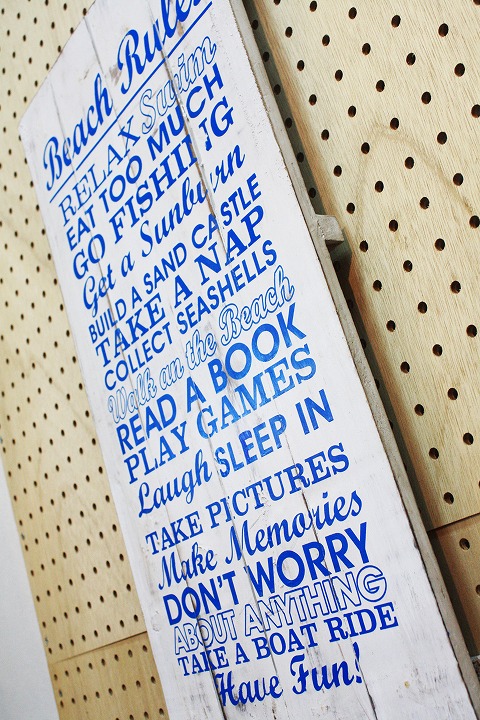 Beach Rules
RELAX Swim
EAT TOO MUCH
GO FISHING
Get a Sunburn
BUILD A SAND CASTLE
TAKE A NAP
COLLECT SEASHELLS
Walk on the Beach
READ A BOOK
PLAY GAMES
Laugh SLEEP IN
TAKE PICTURES
Make Memories
DON'T WORRY
ABOUT ANYTHING
TAKE A BOAT RIDE
Have Fun!